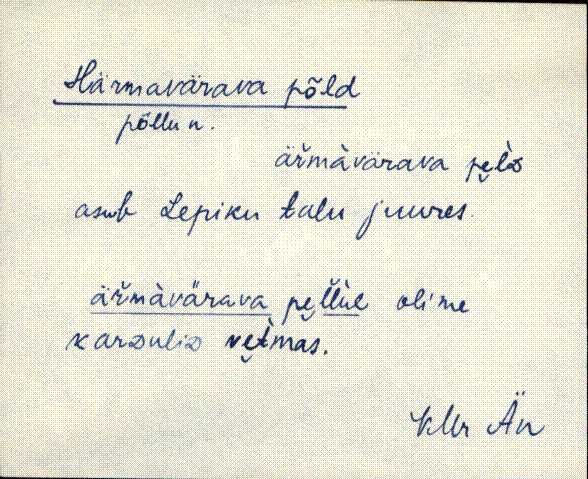 Härmavärava põld
põllu n.
äŕmàvärava pe̮lᴅ
asub Lepiku talu juures.
äŕmàvärava pe̮l̆lùl olime
kaʀᴅuliᴅ ve̮t̀mas.
KMr Än